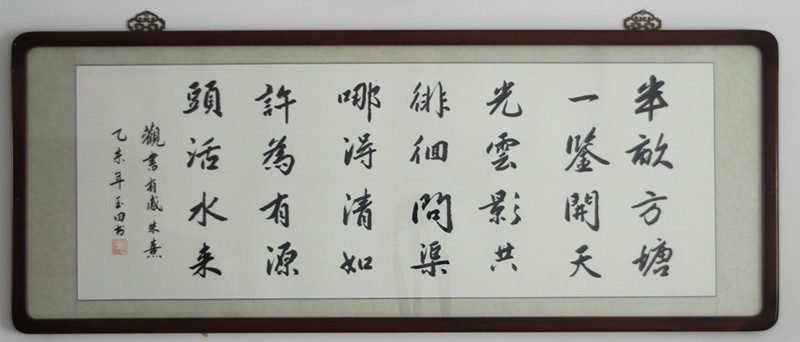 半畝方塘
一鑒開天
光雲影共
徘徊問渠
哪得清如
許為有源
頭活水来
觀書有感朱熹
乙未年玉田书